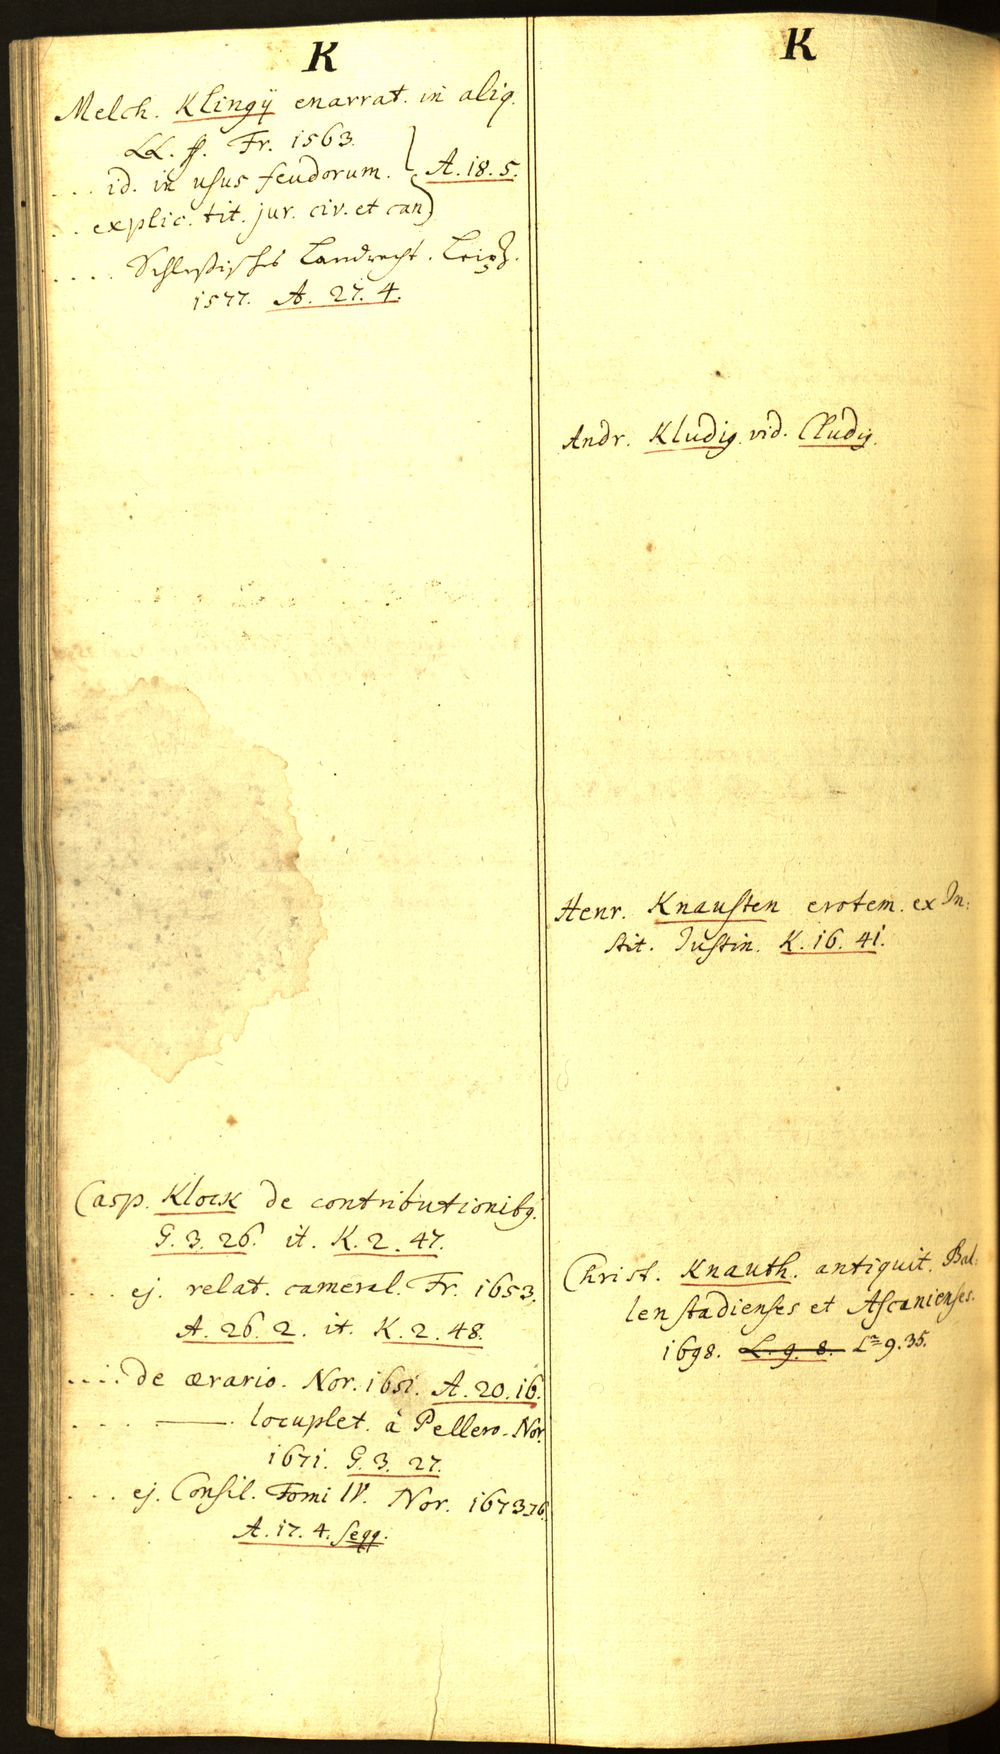 K
Melch. Klingÿ enarrat. in aliq.
LL. ff. Fr. 1563.
... id. in usus feudorum. } A. 18. 5.
.. explic. tit. jur. civ. et can
.... Landrecht. Leipz.
1577. A. 27. 4.
Casp. Klock de contributionibq.
G. 3. 26. it. K. 2. 47.
.... ej. relat. cameral. Fr. 1653.
A. 26. 2. it. K. 2. 48.
..... de ærario. Nor. 1651. A. 20. 16.
.... ——— locuplet. à Pellero. Nor.
1671. G. 3. 27.
.... ej. Consil. Tomi IV. Nor. 1673.76.
A. 17. 4. seqq.
K
Andr. Kludig. vid. Cludig.
Henr. Knausten erotem. ex In:
stit. Justin. K. 16. 41.
Christ. Knauth. antiquit. Bal:
lenstadienses et Ascanienses.
1698. L. 9. 8. L 9. 35.